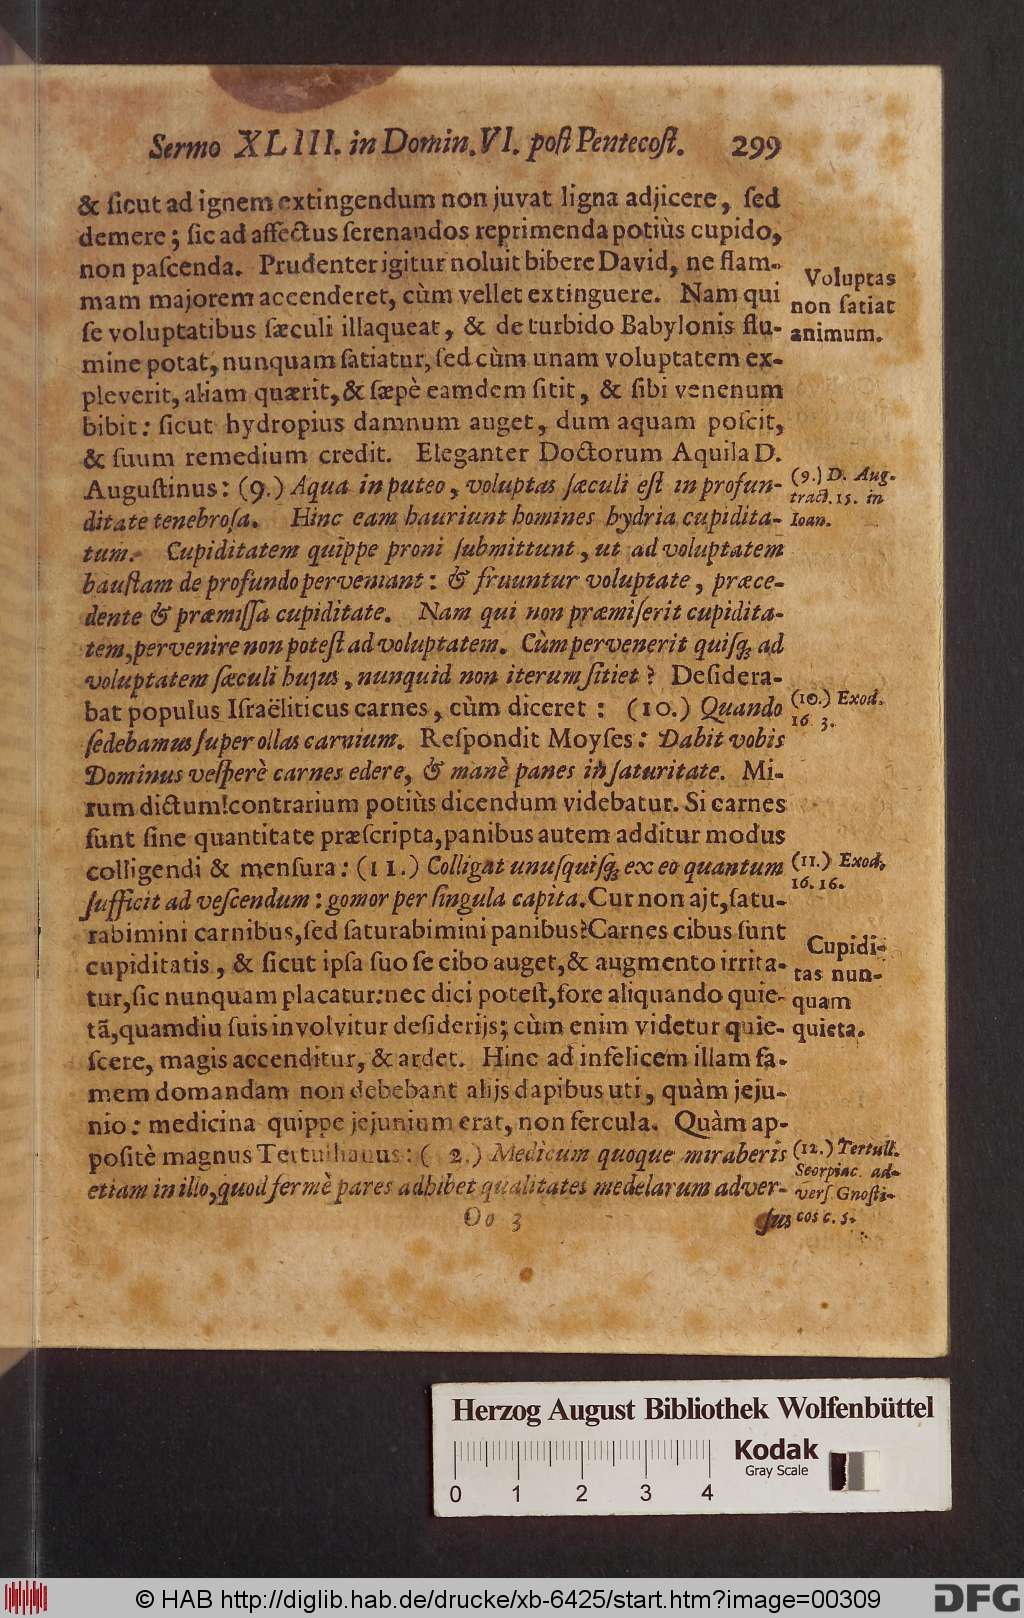 Sermo XLIII. in Domin. VI. poſt Pentecoſt. 299
& ſicut ad ignem extingendum non juvat ligna adjicere, ſed
demere; ſic ad affectus ſerenandos reprimenda potiùs cupido,
non paſcenda. Prudenter igitur noluit bibere David, ne flam-
mam majorem accenderet, cùm vellet extinguere. Nam qui
ſe voluptatibus ſæculi illaqueat, & de turbido Babylonis flu-
mine potat, nunquam ſatiatur, ſed cùm unam voluptatem ex-
pleverit, aliam quærit, & ſæpè eamdem ſitit, & ſibi venenum
bibit: ſicut hydropius damnum auget, dum aquam poſcit,
& ſuum remedium credit. Eleganter Doctorum Aquila D.
Auguſtinus: (9.) Aqua in puteo, voluptas ſæculi eſt in profun-
ditate tenebroſa. Hinc eam hauriunt homines hydria cupidita-
tum. Cupiditatem quippe proni ſubmittunt, ut ad voluptatem
hauſtam de profundo perveniant: & fruuntur voluptate, præce-
dente & præmiſſa cupiditate. Nam qui non præmiſerit cupidita-
tem, pervenire non poteſt ad voluptatem. Cùm pervenerit quiſq; ad
voluptatem ſæculi hujus, nunquid non iterum ſitiet? Deſidera-
bat populus Iſraëliticus carnes, cùm diceret: (10.) Quando
ſedebamus ſuper ollas carnium. Reſpondit Moyſes: Dabit vobis
Dominus veſperè carnes edere, & manè panes in ſaturitate. Mi-
rum dictum! contrarium potiùs dicendum videbatur. Si carnes
ſunt ſine quantitate præſcripta, panibus autem additur modus
colligendi & menſura: (11.) Colligat unuſquiſq; ex eo quantum
ſufficit ad veſcendum: gomor per ſingula capita. Cur non ajt, ſatu-
rabimini carnibus, ſed ſaturabimini panibus? Carnes cibus ſunt
cupiditatis, & ſicut ipſa ſuo ſe cibo auget, & augmento irrita-
tur, ſic nunquam placatur: nec dici poteſt, fore aliquando quie-
tã, quamdiu ſuis involvitur deſiderijs; cùm enim videtur quie-
ſcere, magis accenditur, & ardet. Hinc ad infelicem illam fa-
mem domandam non debebant alijs dapibus uti, quàm jeju-
nio: medicina quippe jejunium erat, non fercula. Quàm ap-
poſitè magnus Tertullianus: ( 2.) Medicum quoque miraberis
etiam in illo, quod fermè pares adhibet qualitates medelarum adver-
Oo 3 ſus
Voluptas
non ſatiat
animum.
(9.) D. Aug.
tract. 15. in
Ioan.
(10.) Exod.
16. 3.
(11.) Exod.
16. 16.
Cupidi-
tas nun-
quam
quieta.
(12.) Tertull.
Scorpiac. ad-
verſ Gnoſti-
cos c. 5.
Herzog August Bibliothek Wolfenbüttel
Kodak
Gray Scale
0 1 2 3 4
© HAB http://diglib.hab.de/drucke/xb-6425/start.htm?image=00309
DFG